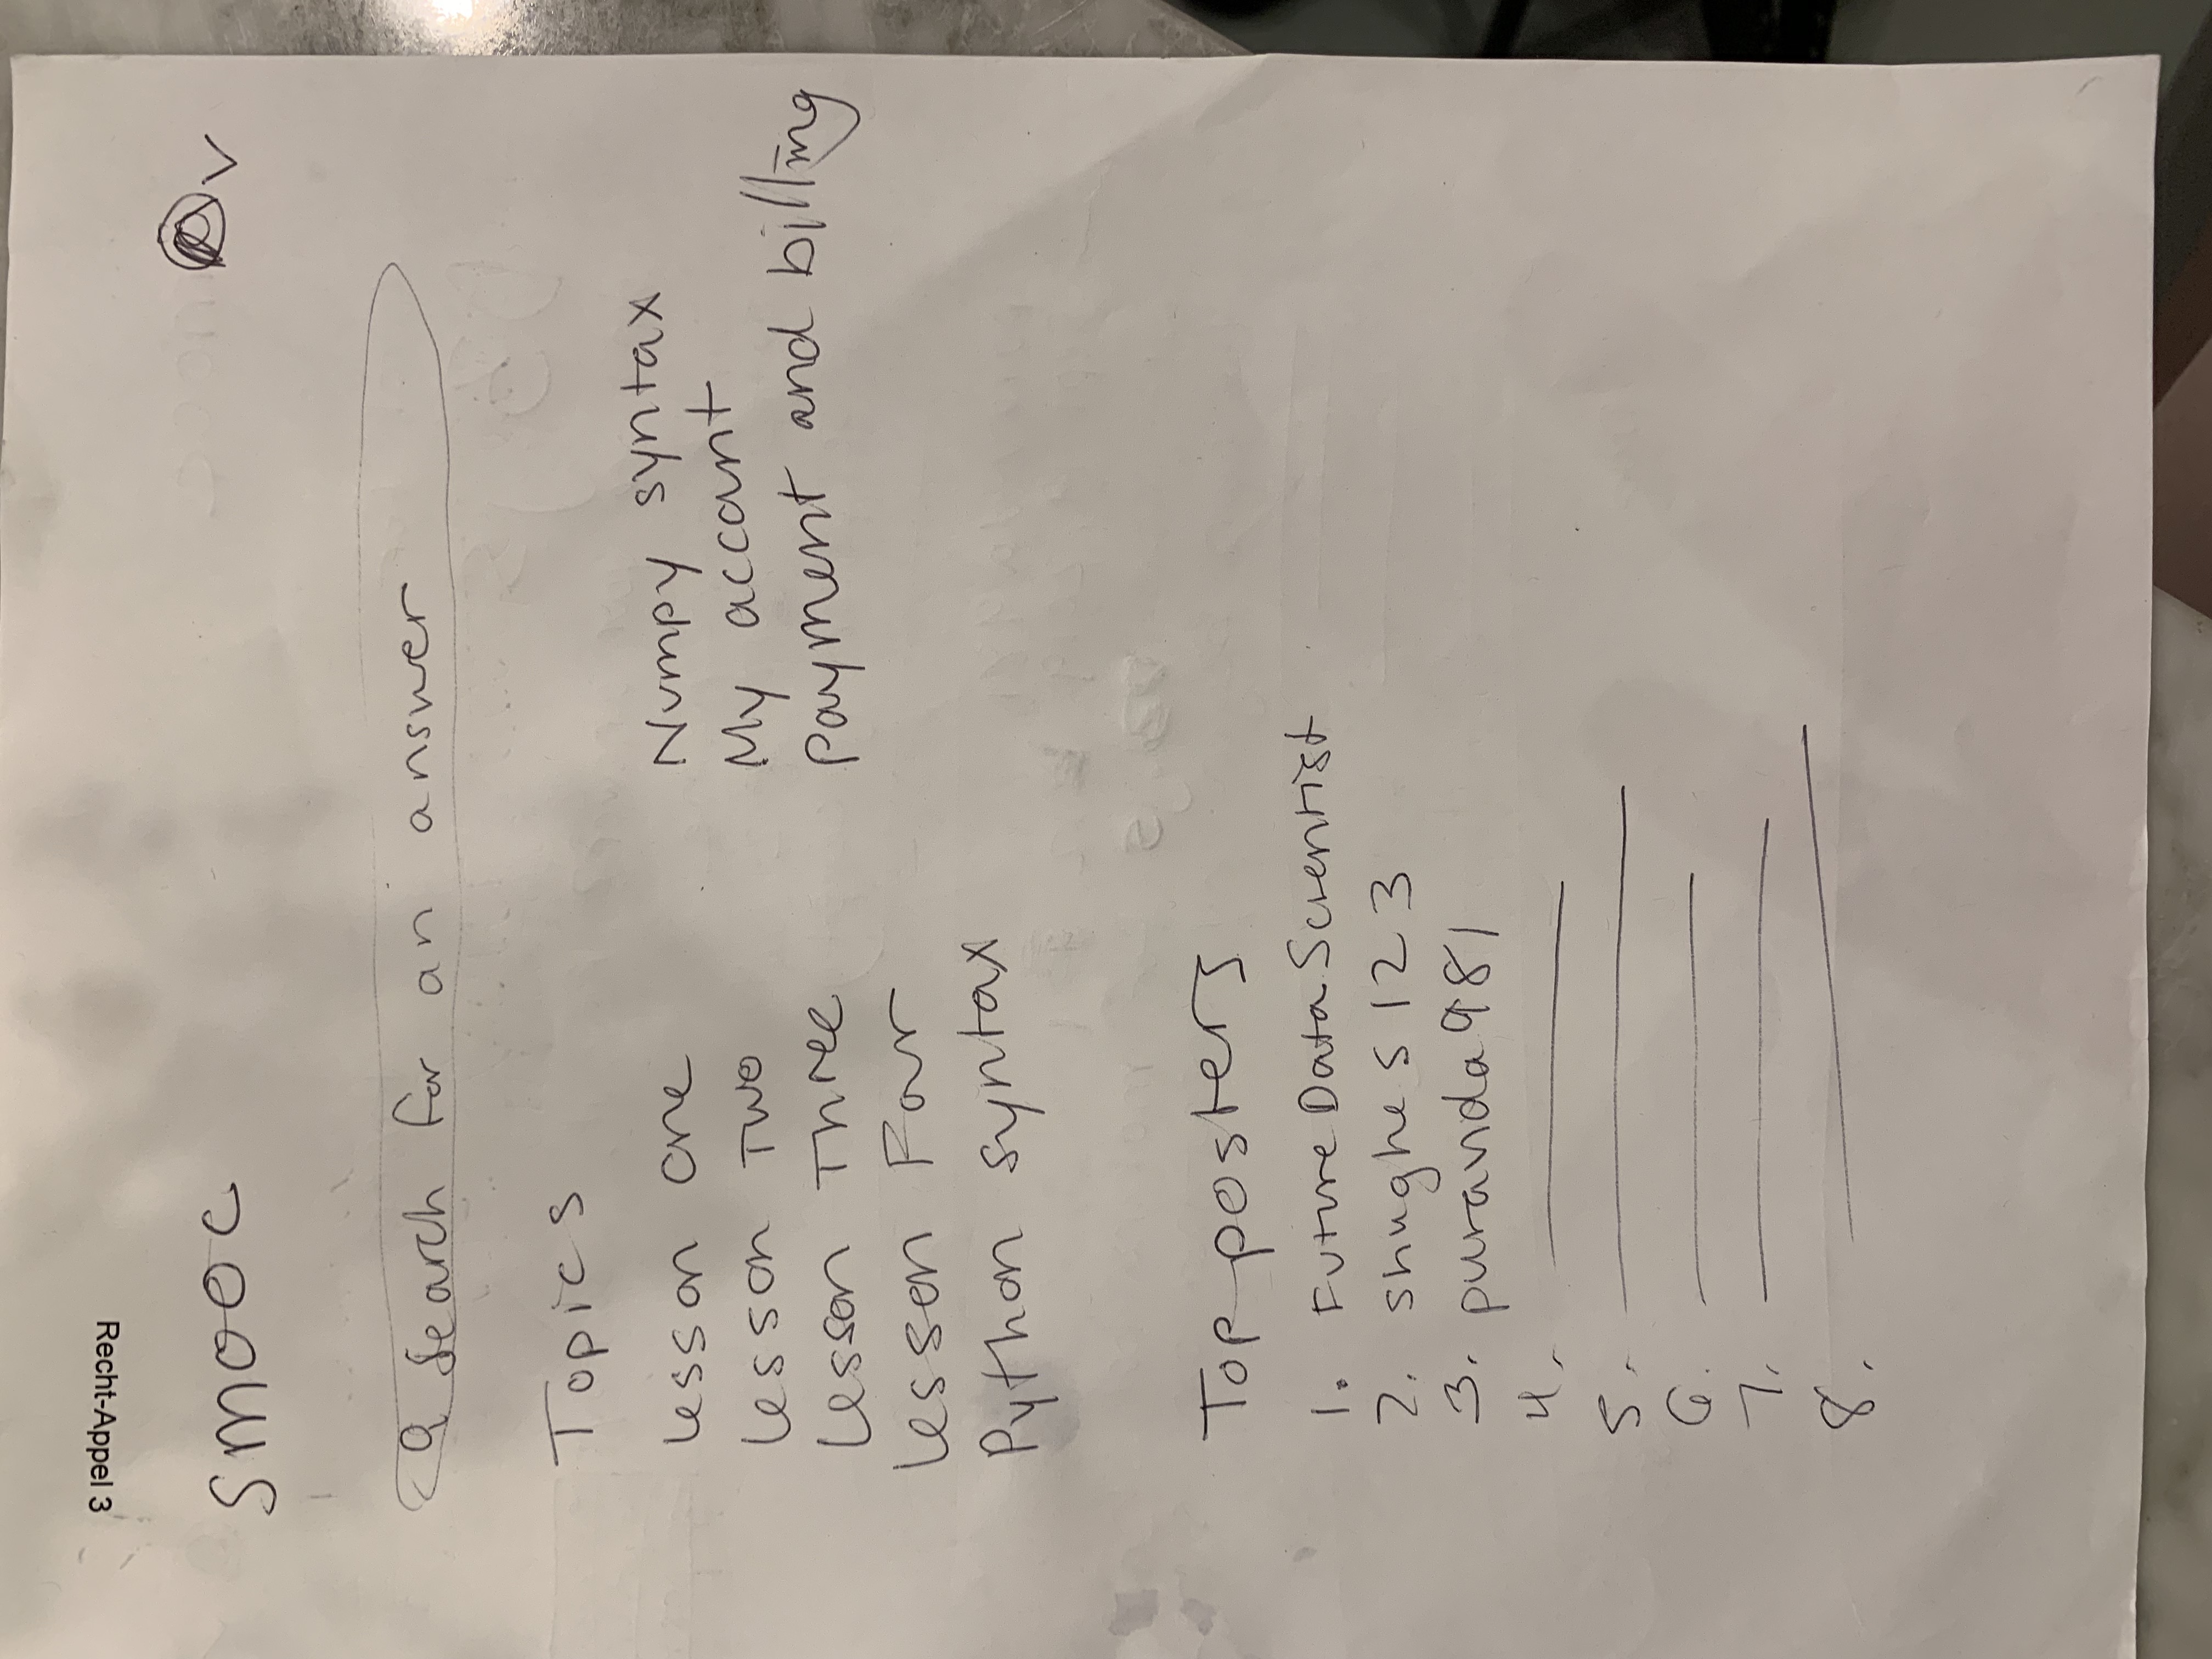 Recht-Appel 3
smooc
Search for an answer
Topics
Lesson one
Lesson Two
Lesson Three
Lesson Four
Python syntax
Numpy syntax
My account
Payment and billing
Top posters
1. FutureDataScientist
2. shughes123
3. puranda981
4.
5.
6.
7.
8.